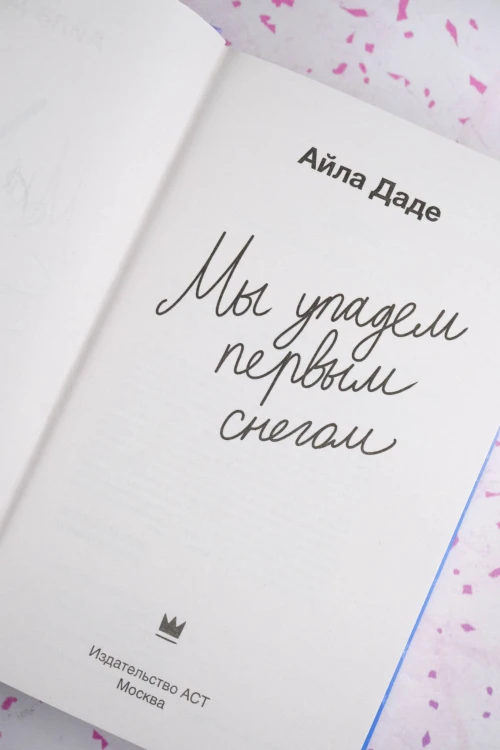 Айла Даде
Мы упадем
первым
снегом
Издательство АСТ
Москва